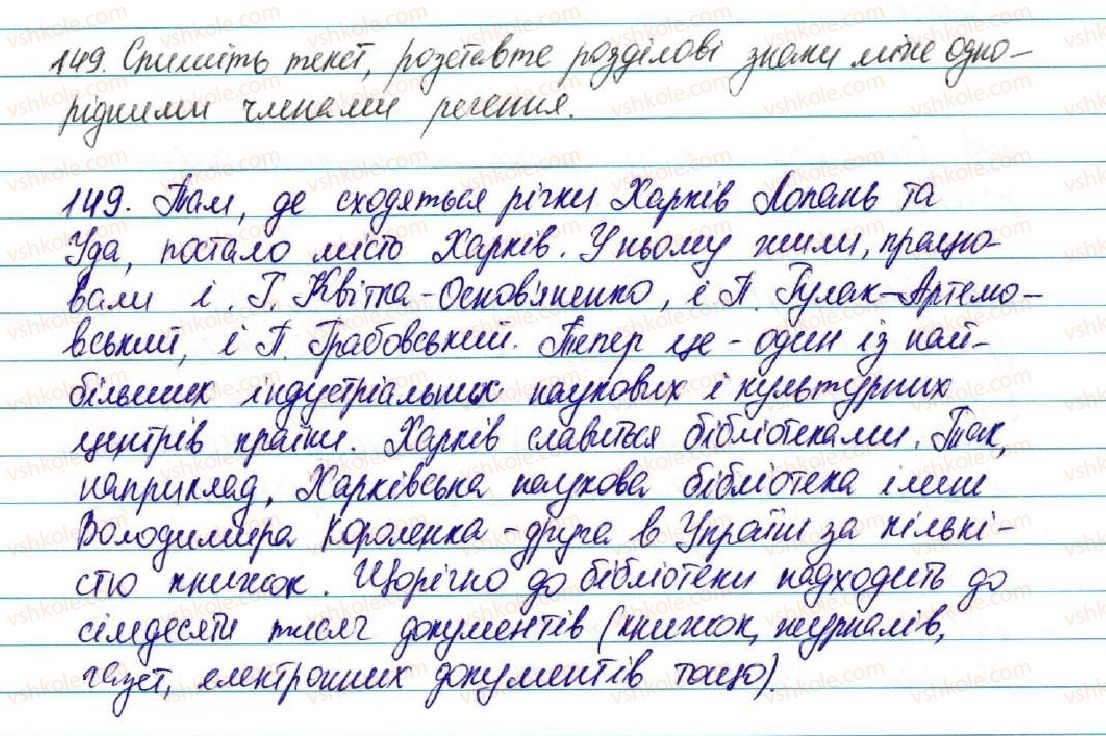 149. Спишіть текст, розставте розділові знаки між одно-
рідними членами речення.
149. Там, де сходяться річки Харків Лопань та
Уда, постало місто Харків. У ньому жили, працю-
вали і Г. Квітка-Основ'яненко, і П. Гулак-Артемо-
вський, і П. Грабовський. Тепер це - один із най-
більших індустріальних наукових і культурних
центрів країни. Харків славиться бібліотеками. Так,
наприклад, Харківська наукова бібліотека імені
Володимира Короленка - друга в Україні за кількі-
стю книжок. Щорічно до бібліотеки надходить до
сімдесяти тисяч документів (книжок, журналів,
газет, електронних документів тощо).